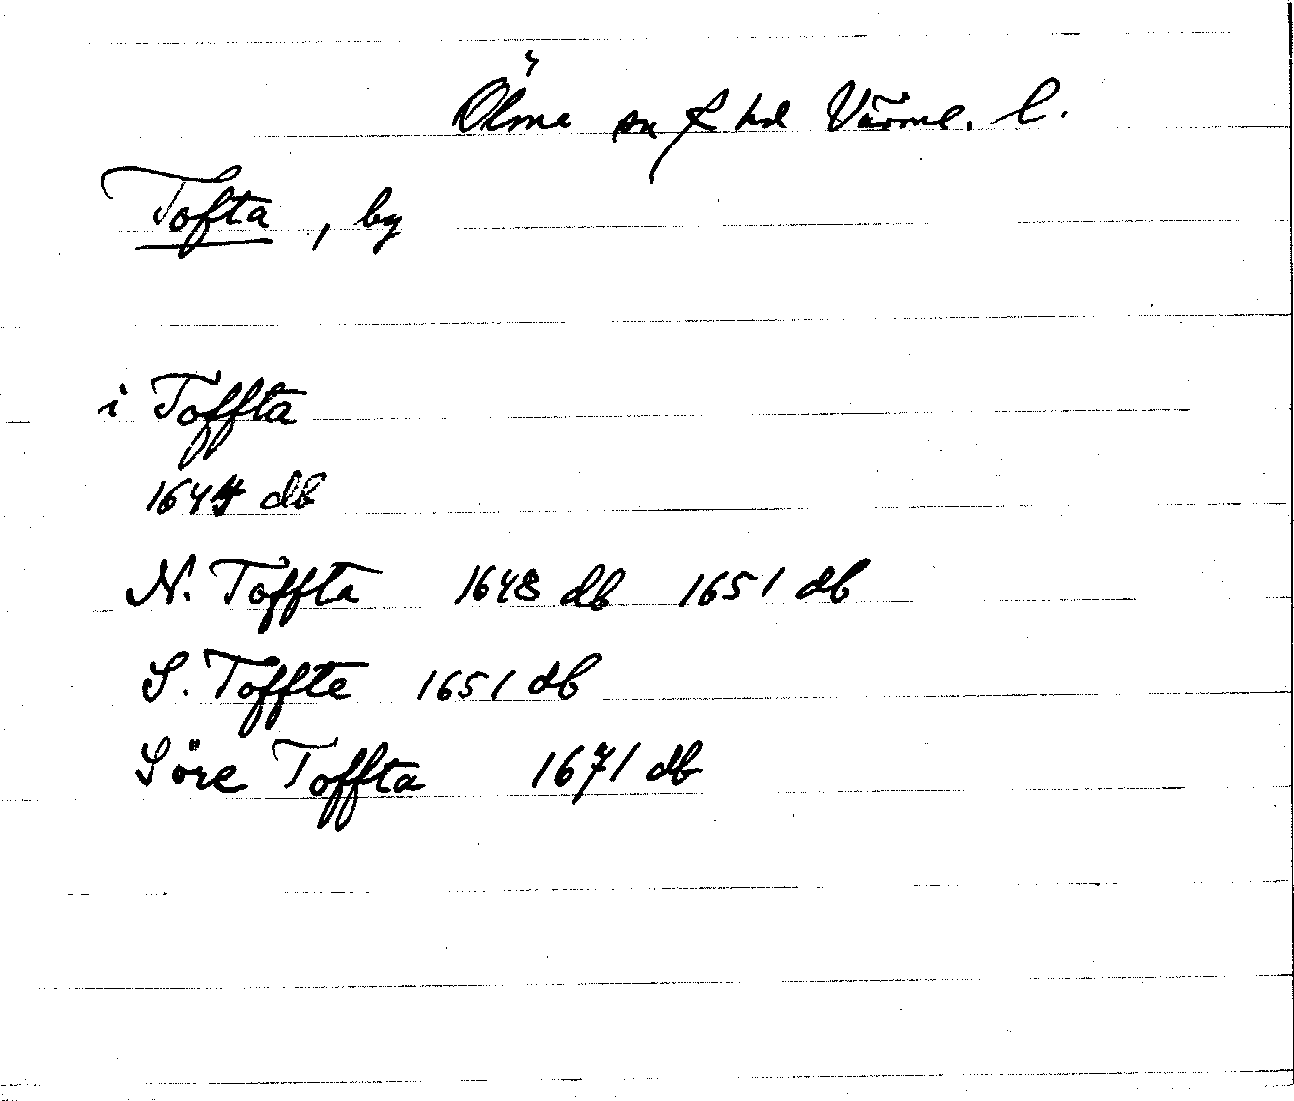 Ölme sn f hd Värml. l.
Tofta, by
i Toffta
1644 db
N. Toffta 1648 db 1651 db
S. Toffte 1651 db
Söre Toffta 1671 db